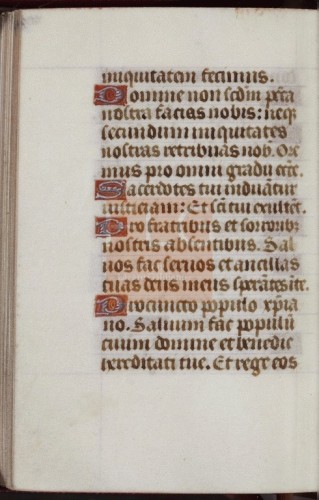 iniquitatem fecimus.
Domine non scd̄m pctā
nostra facias nobis: neq̄
secundum iniquitates
nostras retribuas nob̄. Ore
mus pro omni gradu ecc̄e.
Sacerdotes tui induātur
iusticiam: Et sc̄i tui exultēt.
Pro fratribus et sororibꝫ
nostris absentibus. Sal
uos fac seruos et ancillas
tuas deus meus sperātes ī te.
Pro cuncto populo xp̄ia
no. Saluum fac populū
tuum domine et benedic
hereditati tue. Et rege eos